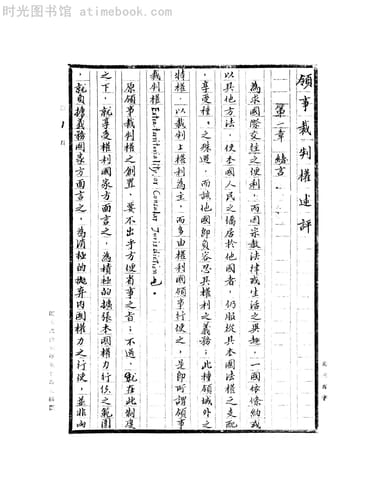 时光图书馆 - atimebook.com
領事裁判權述評
第一章 緒言
為求國際交往之便利，而因宗教法律或生活之異趣，一國依條約或
以其他方法，使本國人民之僑居於他國者，仍服從其本國法權之支配
，享受種種之殊遇，而該他國卽負容忍其權利之義務；此種領域外之
特權，以裁判上權利為主，而多由權利國領事行使之，是卽所謂領事
裁判權 Extra-territoriality, or Consular Jurisdiction 也。
原領事裁判權之創置，要不出乎方便省事之旨；不過，就在此制度
之下，就享受權利國家方面言之，為積極的擴張本國權力行使之範圍
，就負擔義務國家方面言之，為消極的拋棄內國權力之行使，並非兩